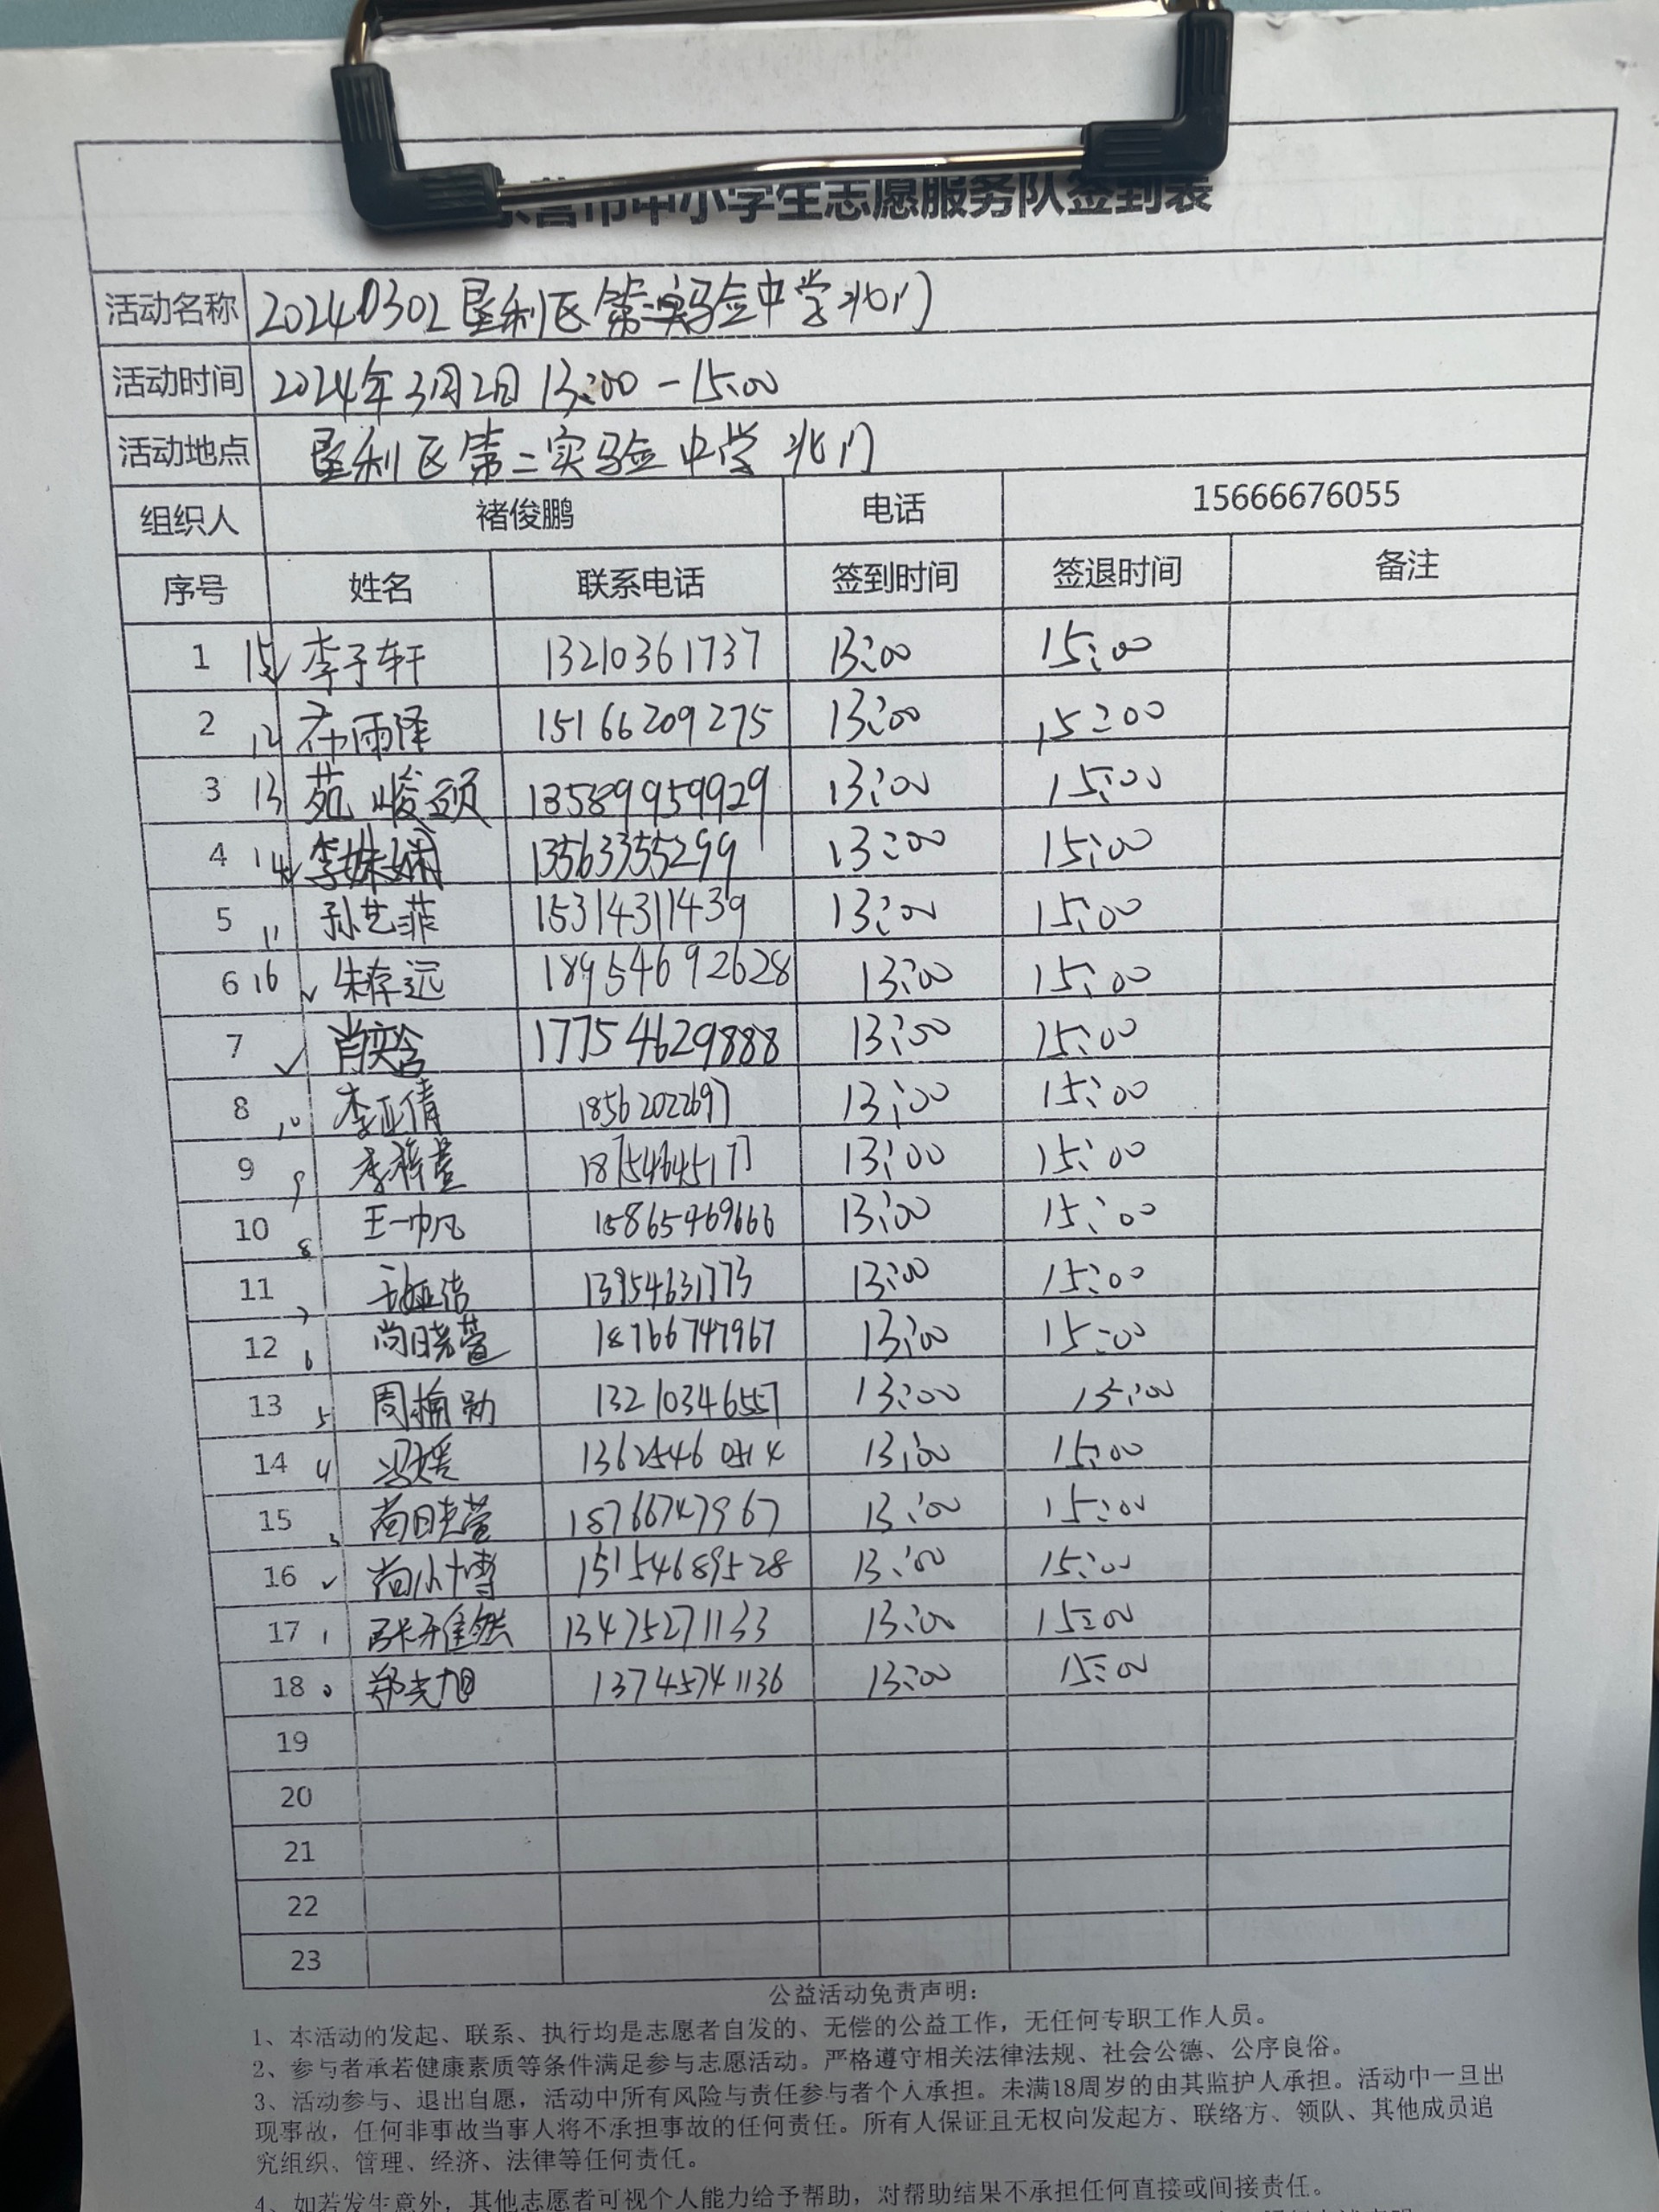 东营市中小学生志愿服务队签到表
活动名称 20240302垦利区第二实验中学北门
活动时间 2024年3月2日 13:00-15:00
活动地点 垦利区第二实验中学北门
组织人 褚俊鹏 电话 15666676055
序号 姓名 联系电话 签到时间 签退时间 备注
1 15 ✓ 李子轩 13210361737 13:00 15:00
2 12 雨泽 15166209275 13:00 15:00
3 13 苑峻硕 13589959929 13:00 15:00
4 14 ✓ 李姝娴 13563355299 13:00 15:00
5 11 孙艺菲 15314311439 13:00 15:00
6 16 ✓ 朱存远 18954692628 13:00 15:00
7 ✓ 肖奕含 17754629888 13:00 15:00
8 10 李亚倩 18562022697 13:00 15:00
9 9 李梓萱 13:00 15:00
10 8 王一帆 15865469666 13:00 15:00
11 7 13954631773 13:00 15:00
12 6 尚晓萱 18766747967 13:00 15:00
13 5 周楠勋 13210346557 13:00 15:00
14 4 冯媛 13625460514 13:00 15:00
15 3 尚晓萱 18766747967 13:00 15:00
16 ✓ 尚小博 15154689528 13:00 15:00
17 1 13475271133 13:00 15:00
18 0 郑光旭 13745741136 13:00 15:00
19
20
21
22
23
公益活动免责声明:
1、本活动的发起、联系、执行均是志愿者自发的、无偿的公益工作，无任何专职工作人员。
2、参与者承若健康素质等条件满足参与志愿活动。严格遵守相关法律法规、社会公德、公序良俗。
3、活动参与、退出自愿，活动中所有风险与责任参与者个人承担。未满18周岁的由其监护人承担。活动中一旦出
现事故，任何非事故当事人将不承担事故的任何责任。所有人保证且无权向发起方、联络方、领队、其他成员追
究组织、管理、经济、法律等任何责任。
4、如若发生意外，其他志愿者可视个人能力给予帮助，对帮助结果不承担任何直接或间接责任。